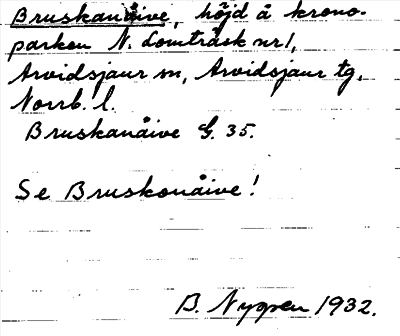 Bruskanåive, höjd å krono-
parken N. Lomträsk nr 1,
Arvidsjaur sn, Arvidsjaur tg,
Norrb. l.
Bruskanåive G. 35.
Se Bruskonåive!
B. Nygren 1932.